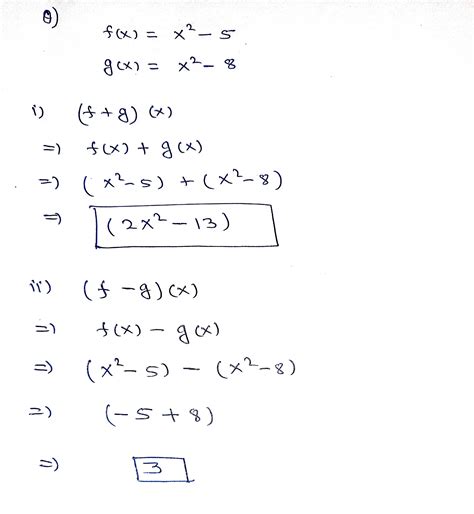 Q)
f(x) = x² - 5
g(x) = x² - 8
i) (f + g) (x)
=) f(x) + g(x)
=) (x² - 5) + (x² - 8)
=) (2x² - 13)
ii) (f - g) (x)
=) f(x) - g(x)
=) (x² - 5) - (x² - 8)
=) (-5 + 8)
=) 3